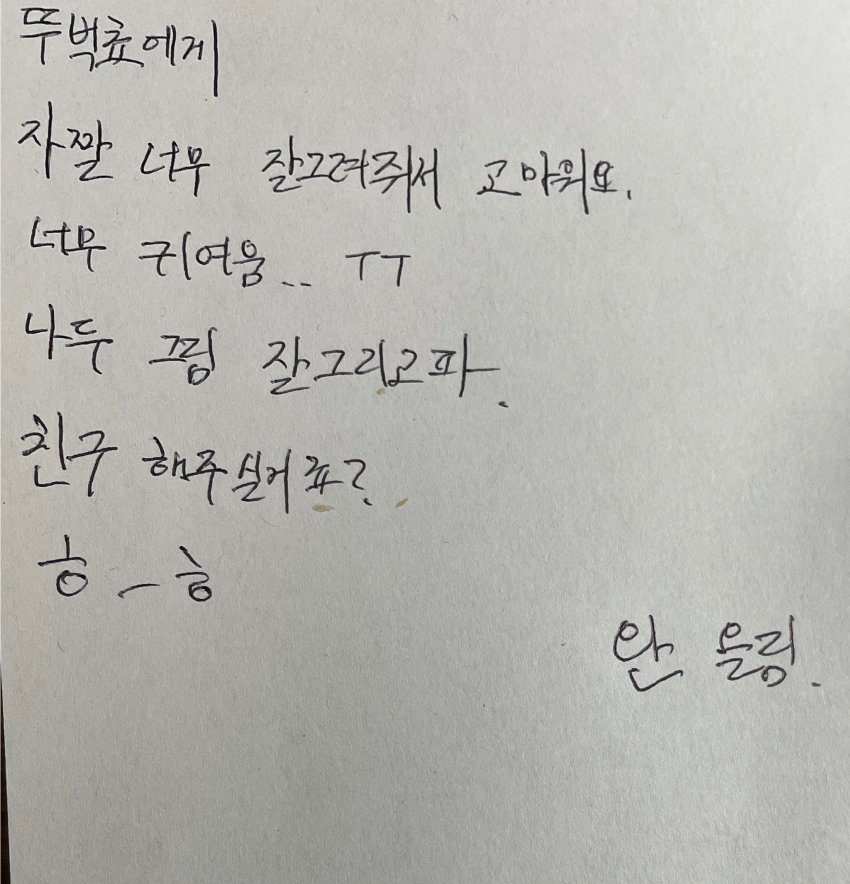 뚜벅쵸에게
자짤 너무 잘그려줘서 고마워요.
너무 귀여움.. ㅜㅜ
나두 끄림 잘그리고파.
친구 해주실거죠?
ㅎ_ㅎ
완 올림.